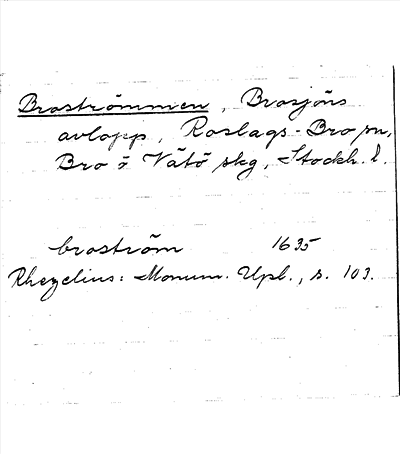 Broströmmen, Brosjöns
avlopp, Roslags-Bro sn,
Bro o. Vätö skg, Stockh. l.
broström 1635
Rhezelius: Monum. Upl., s. 103.